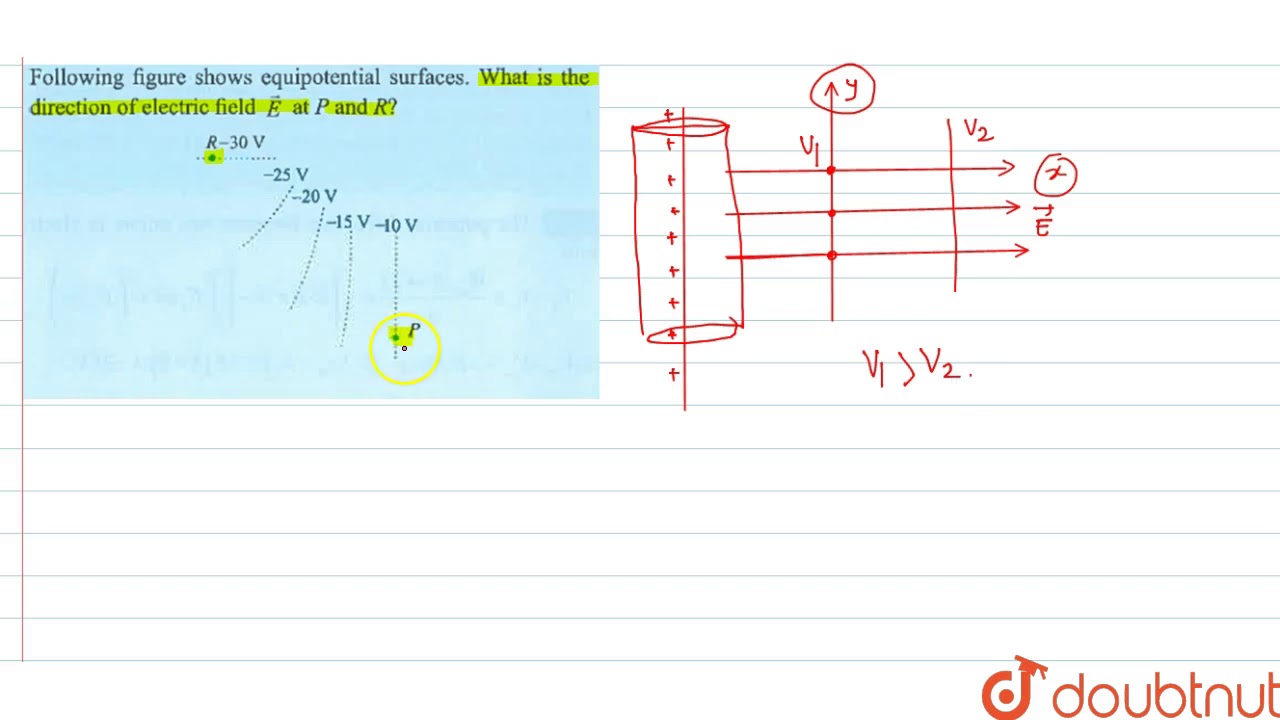 Following figure shows equipotential surfaces. What is the
direction of electric field E⃗ at P and R?
R–30 V
–25 V
–20 V
–15 V –10 V
P
+
+
+
+
+
+
+
+
+
y
V1
V2
x
E⃗
V1 > V2.
doubtnut